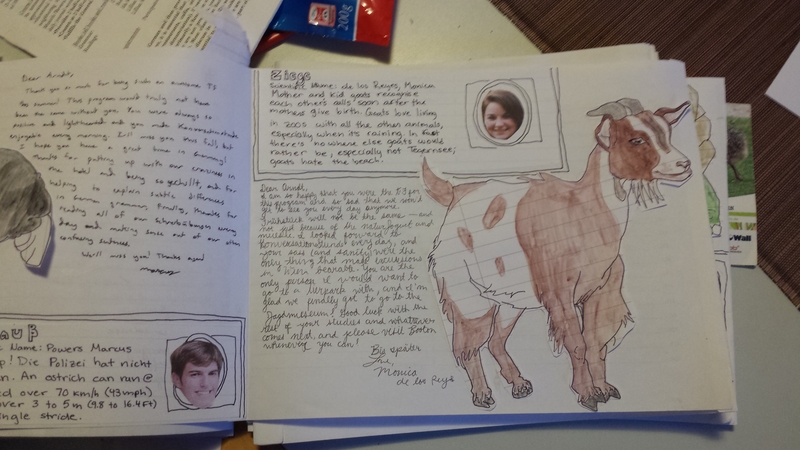 Dear Arndt,
Thank you so much for being such an awesome TA
this summer! This program would truly not have
been the same without you. You were always so
and lighthearted and you made Konversationsstunde
enjoyable every morning. I'll miss you this fall, but
I hope you have a great time in Germany!
Thanks for putting up with our craziness in
and being so and for
helping to explain subtle differences
in German grammar. Finally, thanks for
reading all of our Schreibübungen every
day and making sense out of our often
confusing sentences.
We'll miss you! Thanks again
Marcus
auß
: Name: Powers Marcus
p! Die Polizei hat nicht
n. An ostrich can run @
ed over 70 km/h (43mph)
over 3 to 5m (9.8 to 16.4ft)
ingle stride.
Ziege
Scientific Name: de los Reyes, Monica
Mother and kid goats recognise
each others calls soon after the
mothers give birth. Goats love living
in zoos with all the other animals,
especially when it's raining. In fact
there's nowhere else goats would
rather be, especially not Tegernsee;
goats hate the beach.
Dear Arndt,
I am so happy that you were the TA for
this program and so sad that we won't
get to see you every day anymore.
Frühstück will not be the same — and
not just because of the naturjogurt and
muesli. I looked forward to
Konversationsstunde every day, and
your sass (and sanity) were the
only thing that made excursions
in Wien bearable. You are the
only person I would want to
go to a Tierpark with, and I'm
glad we finally got to go to the
Jagdmuseum! Good luck with the
rest of your studies and whatever
comes next, and please visit Boston
whenever you can!
Bis später
Love,
Monica
de los Reyes
200g
Wall